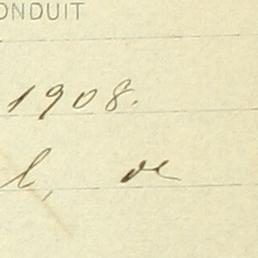 ONDUIT
1908.
l, de